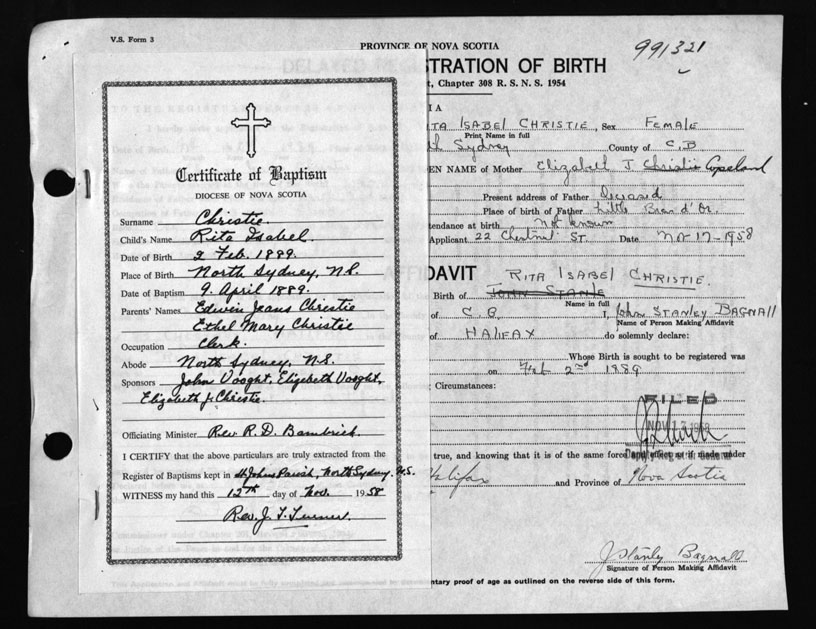 V.S. Form 3
PROVINCE OF NOVA SCOTIA
991321
DELAYED REGISTRATION OF BIRTH
t, Chapter 308 R. S. N. S. 1954
IA
ITA ISABEL CHRISTIE, Sex FEMALE
Print Name in full
th Sydney County of C.B
EN NAME of Mother Elizabeth J. Christie Copeland
Present address of Father Deceased
Place of birth of Father Little Bras d'Or.
tendance at birth Not known
Applicant 22 Chestnut ST. Date Nov-17-1958
FIDAVIT RITA ISABEL CHRISTIE.
Birth of JOHN STANLE
Name in full
of C.B. I, John STANLEY BAGNALL
Name of Person Making Affidavit
of HALIFAX do solemnly declare:
Whose Birth is sought to be registered was
on Feb 2nd 1889
Circumstances:
FILED
NOV 17 1958
true, and knowing that it is of the same force and effect as if made under
Deputy Registrar General
Halifax and Province of Nova Scotia
J Stanley Bagnall
Signature of Person Making Affidavit
ntary proof of age as outlined on the reverse side of this form.
Certificate of Baptism
DIOCESE OF NOVA SCOTIA
Surname Christie.
Child's Name Rita Isabel.
Date of Birth 2 Feb. 1889.
Place of Birth North Sydney, N.S.
Date of Baptism 9 April 1889.
Parents' Names Edwin Jeans Christie
Ethel Mary Christie
Occupation Clerk.
Abode North Sydney, N.S.
Sponsors John Vooght, Elizabeth Vooght,
Elizabeth J. Christie.
Officiating Minister Rev R. D. Bambrick.
I CERTIFY that the above particulars are truly extracted from the
Register of Baptisms kept in St Johns Parish, North Sydney. N.S.
WITNESS my hand this 12th day of Nov. 1958
Rev. J. T. Turner.